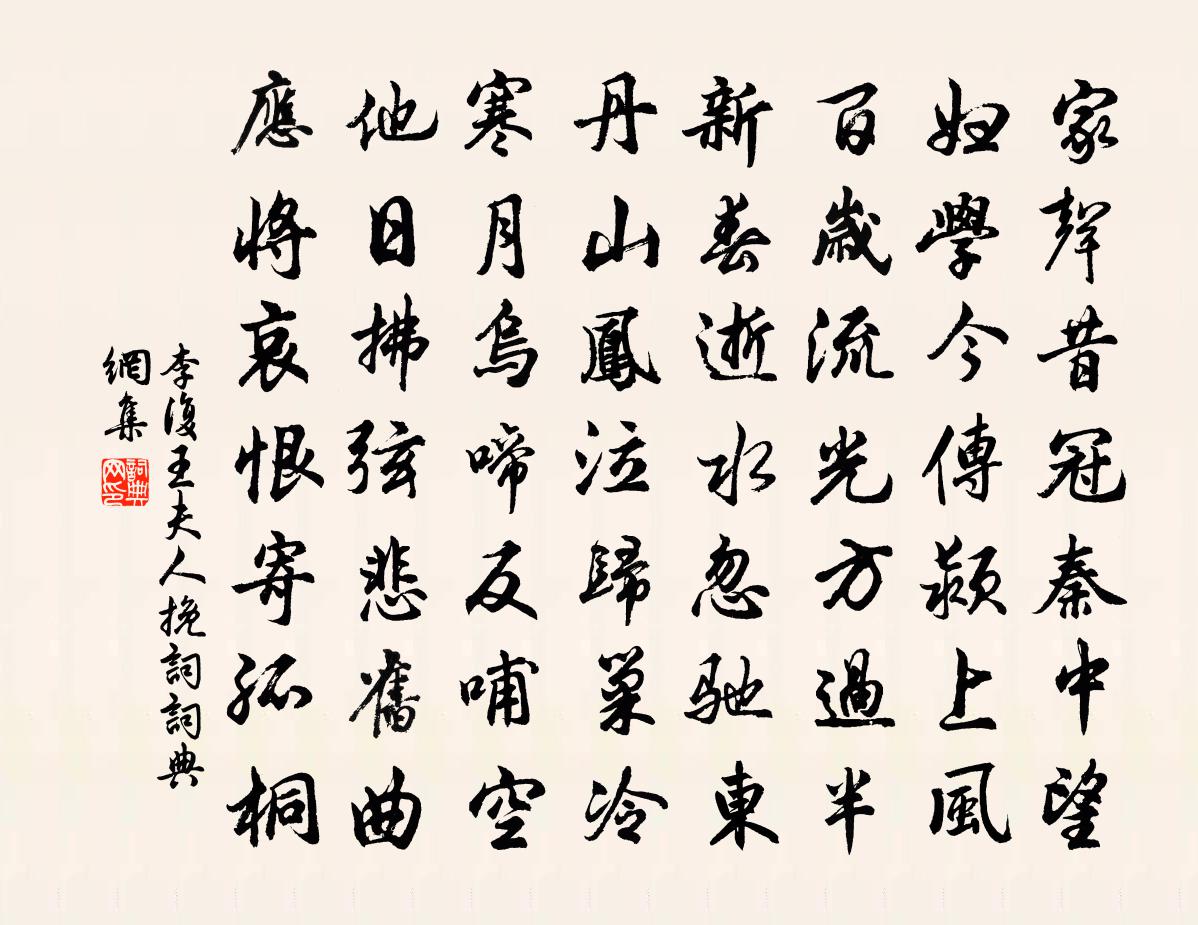 家聲昔冠秦中望
婦學今傳潁上風
百歲流光方過半
新春逝水忽馳東
丹山鳳泣歸巢冷
寒月烏啼反哺空
他日拂弦悲舊曲
應將哀恨寄孤桐
李復王夫人挽詞詞典
網集
詞典
网印